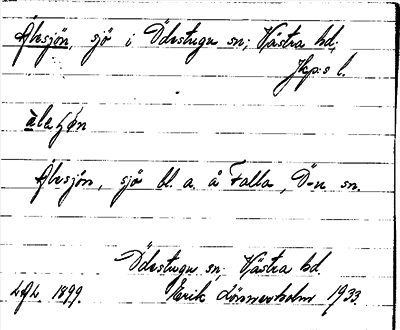 Älesjön, sjö i Ödestugu sn; Västra hd;
Jkp:s l.
àle
Älesjön, sjö bl. a. å Falla, Ö-u sn.
Ödestugu sn, Västra hd.
1899. Erik Lönnerholm 1933.